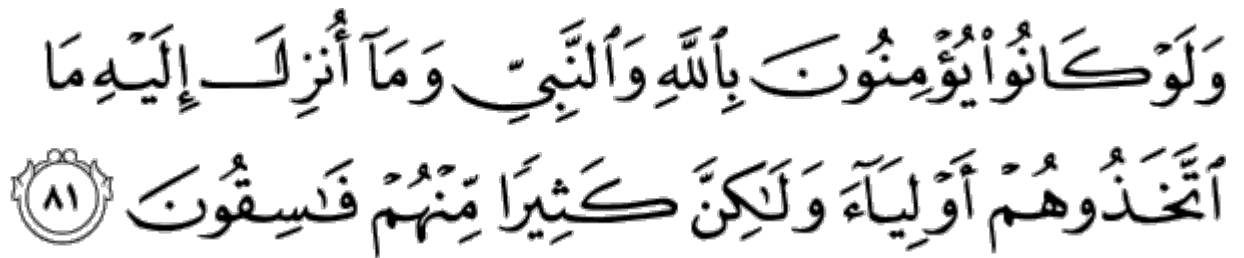 وَلَوْ كَانُوا۟ يُؤْمِنُونَ بِٱللَّهِ وَٱلنَّبِىِّ وَمَآ أُنزِلَ إِلَيْهِ مَا
ٱتَّخَذُوهُمْ أَوْلِيَآءَ وَلَـٰكِنَّ كَثِيرًا مِّنْهُمْ فَـٰسِقُونَ ٨١